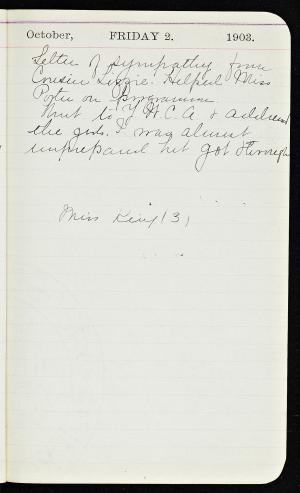 October, FRIDAY 2. 1903.
Letter of sympathy from
Cousin Lizzie. Helped Miss
Porter on programme.
Went to Y.W.C.A. & addressed
the girls. I was almost
unprepared but got through
Miss King (3)